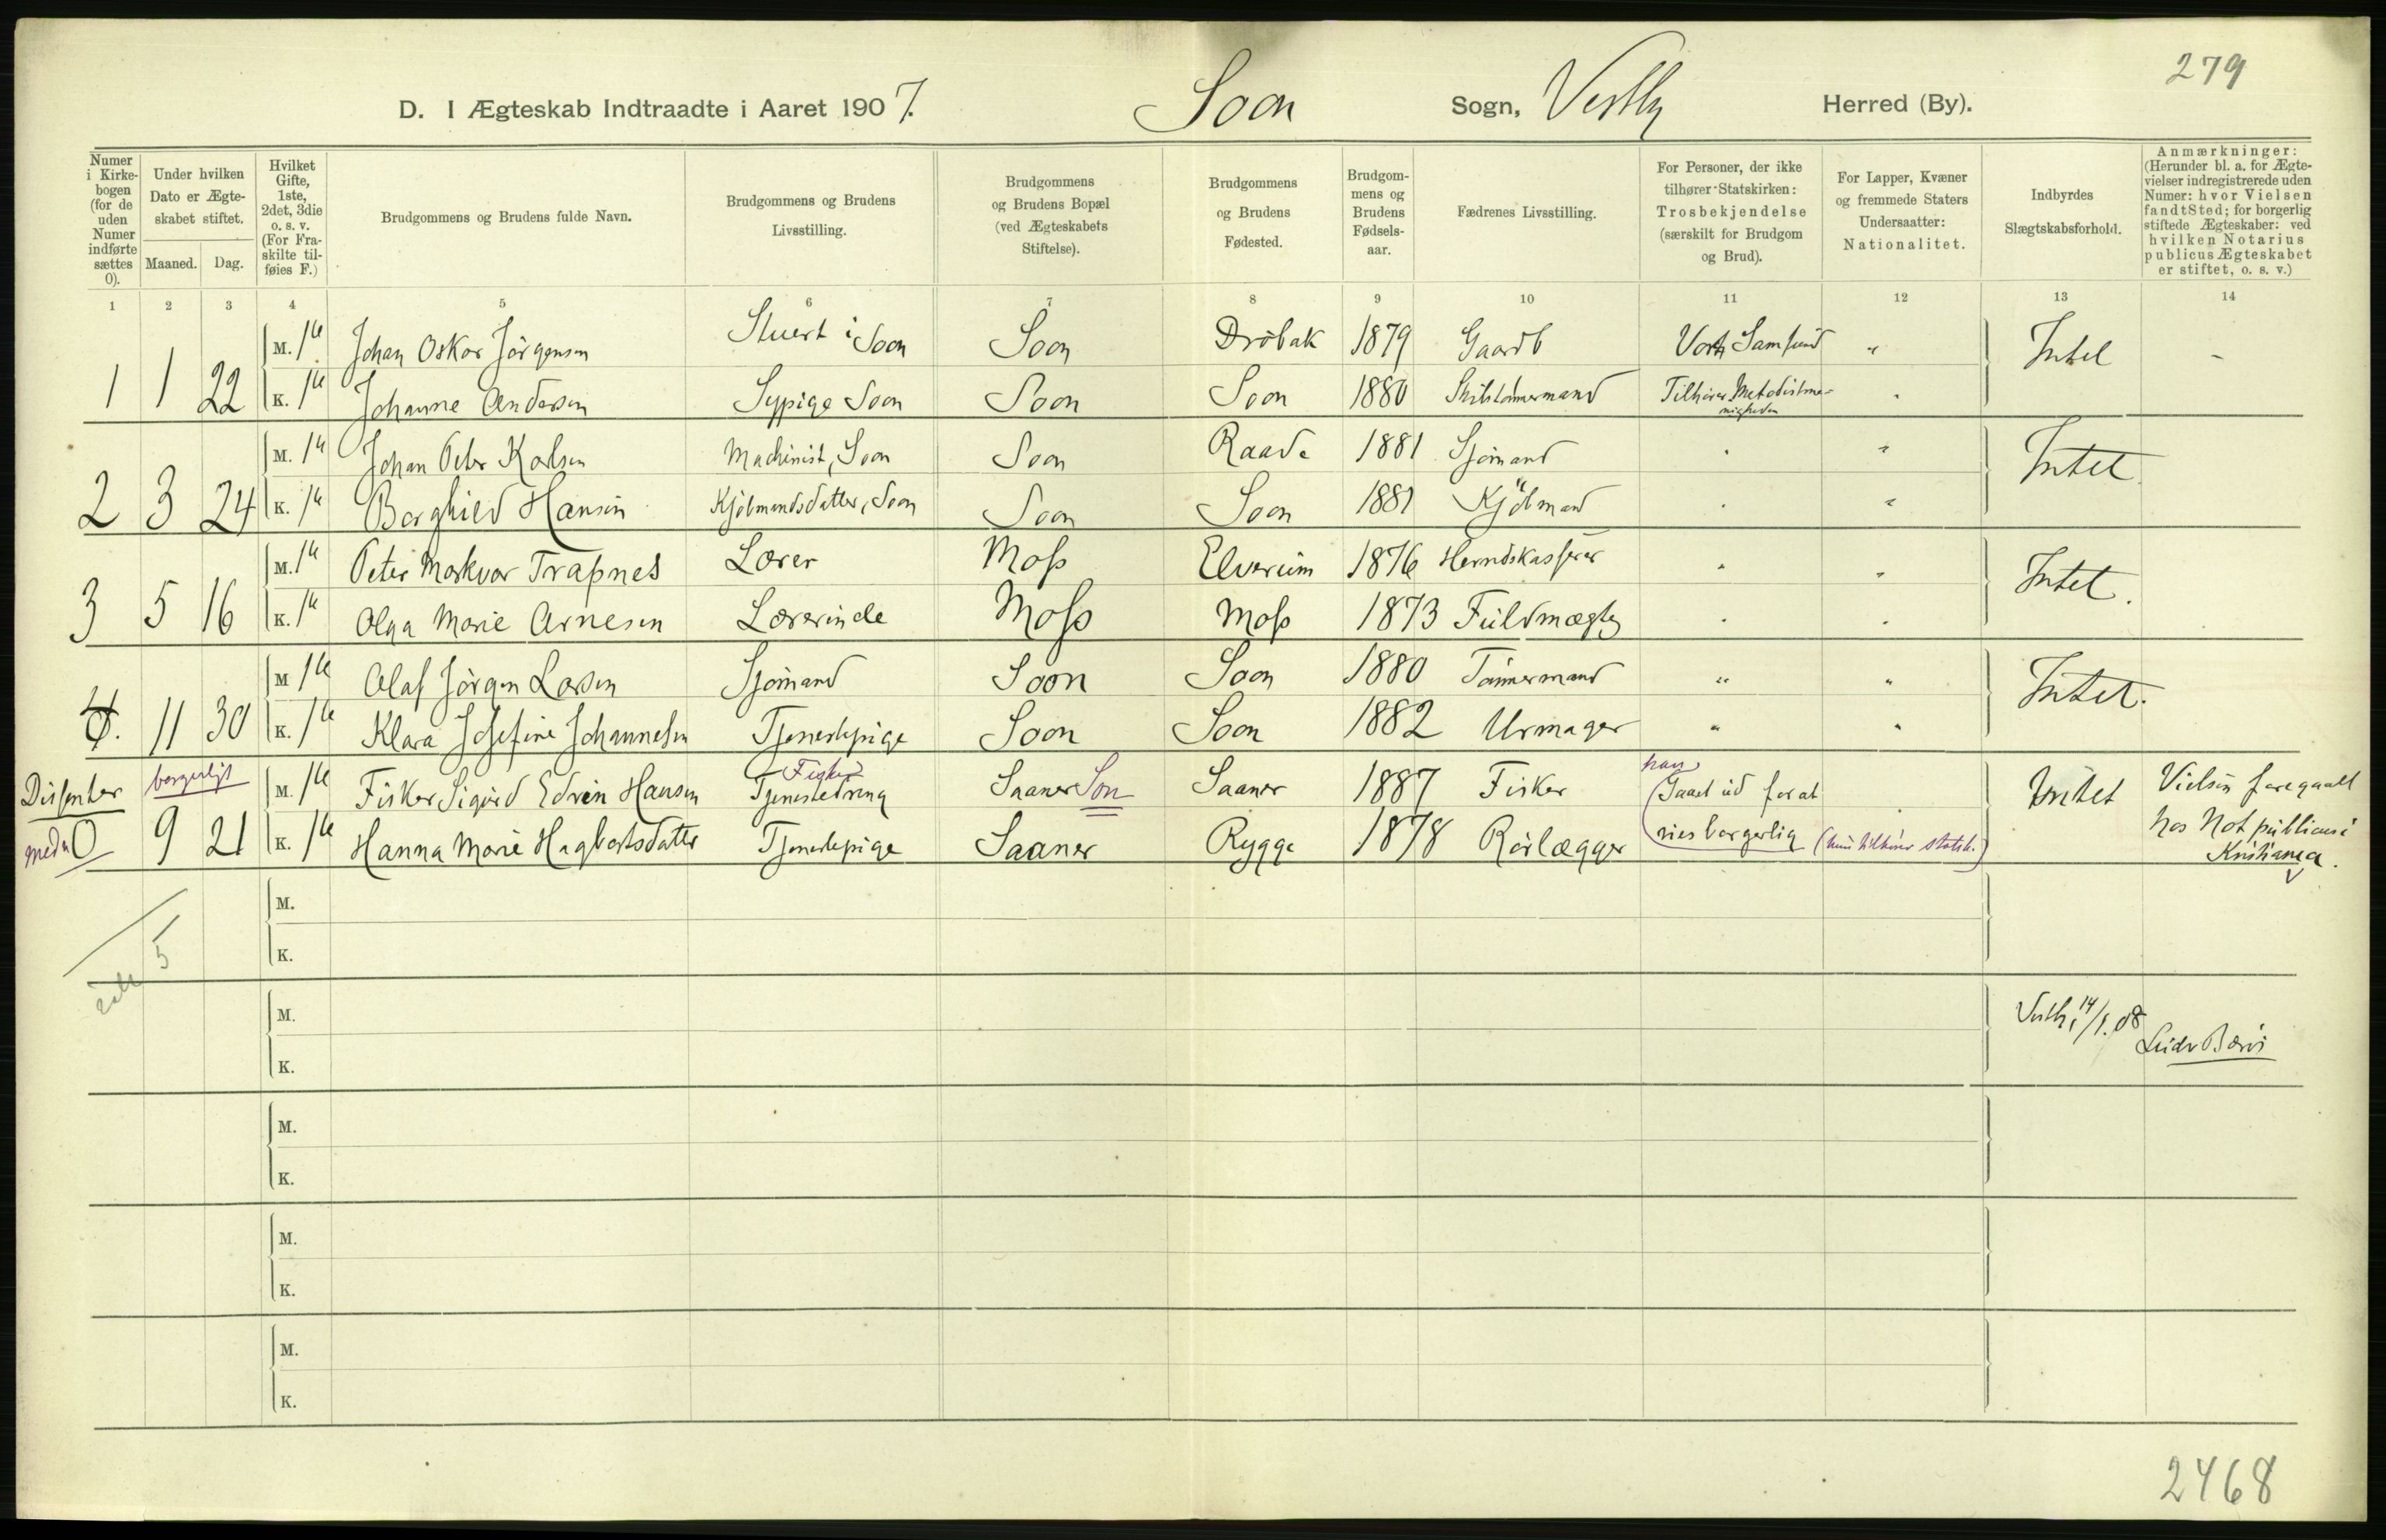 279
D. I Ægteskab Indtraadte i Aaret 1907. Soon Sogn, Vestby Herred (By).
Numer i Kirke-bogen (for de uden Numer indførte sættes 0).
Under hvilken Dato er Ægte-skabet stiftet.
Maaned. Dag.
Hvilket Gifte, 1ste, 2det, 3die o. s. v. (For Fra-skilte til-føies F.)
Brudgommens og Brudens fulde Navn.
Brudgommens og Brudens Livsstilling.
Brudgommens og Brudens Bopæl (ved Ægteskabets Stiftelse).
Brudgommens og Brudens Fødested.
Brudgom-mens og Brudens Fødsels-aar.
Fædrenes Livsstilling.
For Personer, der ikke tilhører Statskirken: Trosbekjendelse (særskilt for Brudgom og Brud).
For Lapper, Kvæner og fremmede Staters Undersaatter: Nationalitet.
Indbyrdes Slægtskabsforhold.
Anmærkninger: (Herunder bl. a. for Ægte-vielser indregistrerede uden Numer: hvor Vielsen fandt Sted; for borgerlig stiftede Ægteskaber: ved hvilken Notarius publicus Ægteskabet er stiftet, o. s. v.)
1 2 3 4 5 6 7 8 9 10 11 12 13 14
M. 1ste Johan Oskar Jörgensen Stuert i Soon Soon Dröbak 1879 Gaardb Vort Samfund " Intet -
1 1 22 K. 1ste Johanne Andersen Sypige Soon Soon Soon 1880 Tilhører Metodistme-nigheden "
M. 1ste Johan Peter Karlsen Machinist, Soon Soon Raade 1881 Sjömand " " Intet
2 3 24 K. 1ste Borghild Hansen Kjöbmandsdatter, Soon Soon Soon 1881 Kjöbmand " "
M. 1ste Peter Markvar Trapnes Lærer Moss Elverum 1876 Herredskasserer " " Intet.
3 5 16 K. 1ste Olga Marie Arnesen Lærerinde Moss Moss 1873 Fuldmægtig " "
M 1ste Olaf Jörgen Larsen Sjömand Soon Soon 1880 Tömmermand " " Intet.
4. 11 30 K. 1ste Klara Josefine Johannesen Tjenestepige Soon Soon 1882 Urmager " "
Dissenter borgerligt M. 1ste Fisker Sigurd Edvin Hansen Tjenestedreng Fisker Saaner Son Saaner 1887 Fisker han (Gaaet ud for at Intet Vielsen foregaaet
0 9 21 K. 1ste Hanna Marie Hagbartsdatter Tjenestepige Saaner Rygge 1878 Rörlægger vies borgerlig (hun tilhører statsk.) hos Not publicus i
Kristiania.
M.
5
K.
M.
Vestby 14/1.08
K.
M.
K.
M.
K.
M.
K.
2468